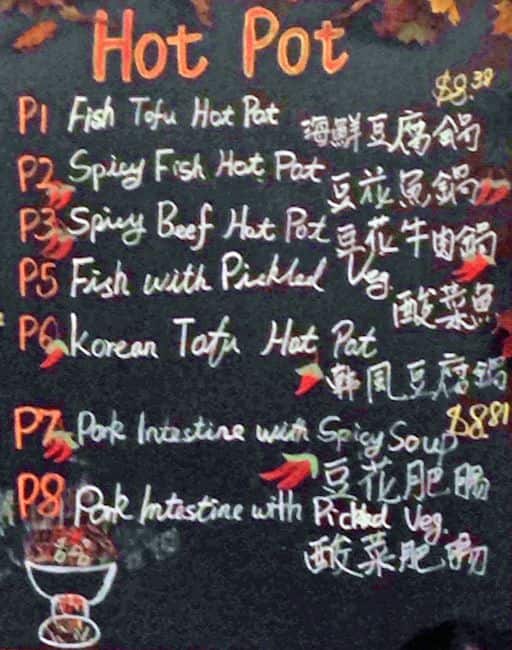 Hot Pot
$8.38
P1 Fish Tofu Hot Pot 海鮮豆腐鍋
P2 Spicy Fish Hot Pot 豆花魚鍋
P3 Spicy Beef Hot Pot 豆花牛肉鍋
P5 Fish with Pickled Veg.
酸菜魚
P6 Korean Tofu Hot Pot
韩風豆腐鍋
$8.81
P7 Pork Intestine with Spicy Soup
豆花肥腸
P8 Pork Intestine with Pickled Veg.
酸菜肥肠